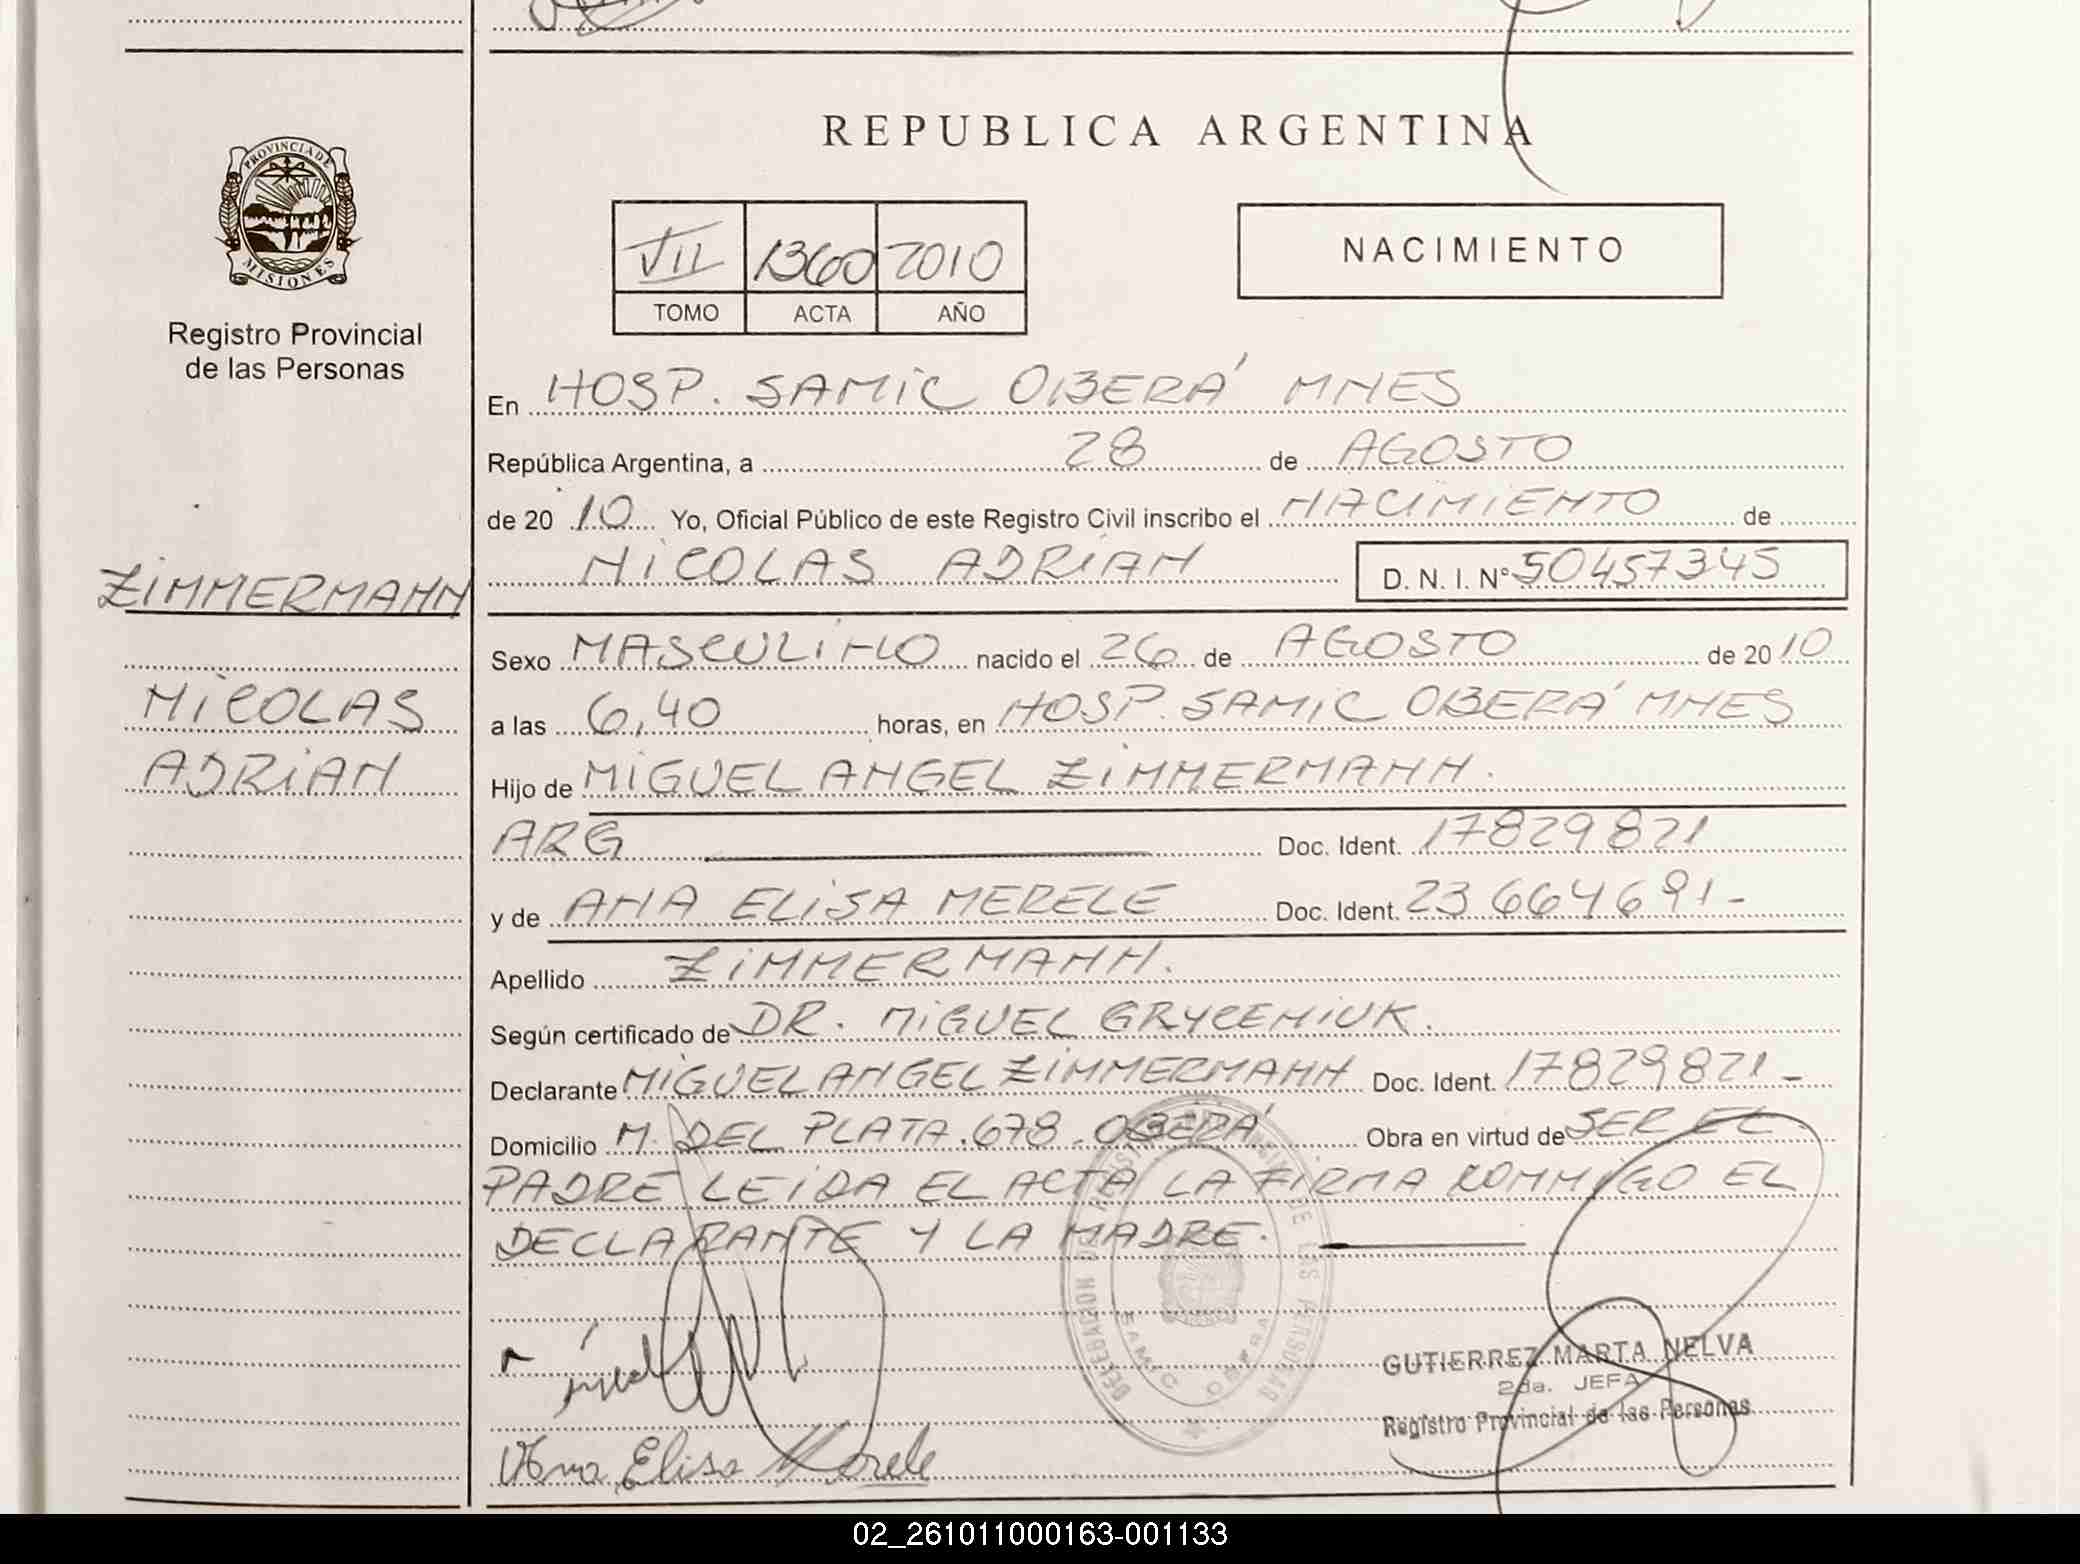 REPUBLICA ARGENTINA
PROVINCIA DE
MISIONES
Registro Provincial
de las Personas
VII 1360 2010
TOMO ACTA AÑO
NACIMIENTO
En HOSP. SAMIC OBERÁ MNES
República Argentina, a 28 de AGOSTO
de 2010 Yo, Oficial Público de este Registro Civil inscribo el NACIMIENTO de
NICOLAS ADRIAN D. N. I. N° 50457345
ZIMMERMANN
NICOLAS
ADRIAN
Sexo MASCULINO nacido el 26 de AGOSTO de 2010
a las 6,40 horas, en HOSP. SAMIC OBERÁ MNES
Hijo de MIGUEL ANGEL ZIMMERMANN.
ARG Doc. Ident. 17829821
y de ANA ELISA MERELE Doc. Ident. 23664691-
Apellido ZIMMERMANN.
Según certificado de DR. MIGUEL GRYCENIUK.
Declarante MIGUEL ANGEL ZIMMERMANN Doc. Ident. 17829821-
Domicilio M. DEL PLATA. 678. OBERÁ Obra en virtud de SER EL
PADRE LEIDA EL ACTA LA FIRMA CONMIGO EL
DECLARANTE Y LA MADRE.
SAMIC OBERA
GUTIERREZ MARTA NELVA
2da. JEFA
Registro Provincial de las Personas
Ana Elisa Merele
02_261011000163-001133